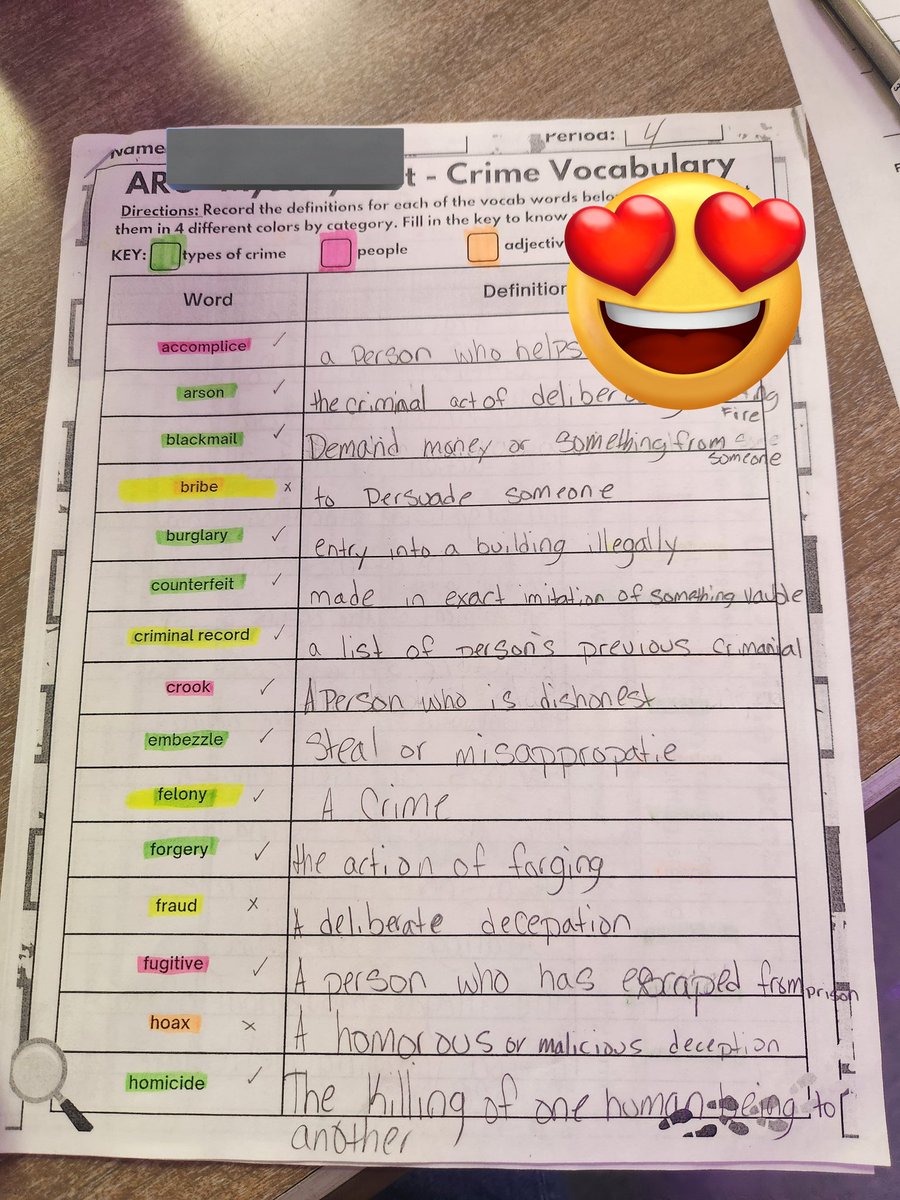 Name
Period: 4
t - Crime Vocabulary
Directions: Record the definitions for each of the vocab words
them in 4 different colors by category. Fill in the key to know
KEY: types of crime people
Word
accomplice ✓ a person who helps
arson ✓ the criminal act of
Fire
blackmail ✓ Demand money or something from
someone
bribe x to Persuade someone
burglary ✓ entry into a building illegally
counterfeit ✓ made in exact imitation of something vauble
criminal record ✓ a list of person's previous crimanial
crook ✓ A Person who is dishonest
embezzle ✓ Steal or misappropatie
felony ✓ A Crime
forgery ✓ the action of farging
fraud x A deliberate decepation
fugitive ✓ A person who has escraped from prison
hoax x A homorous or malicious deception
homicide ✓ The Killing of one human being to
another